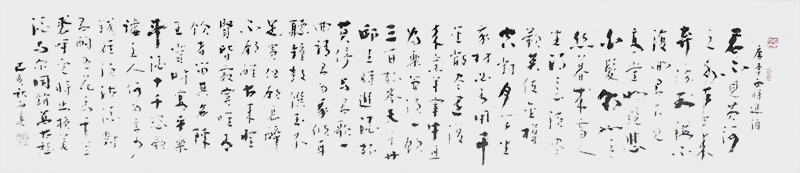 唐李白將進酒
君不見黃河
之水天上来
奔流到海不
復回君不見
高堂明鏡悲
白髮朝如青
絲暮成雪人
生得意須盡
歡莫使金樽
空對月天生
我材必有用千
金散盡還復
来烹羊宰牛且
為樂會須一飲
三百杯岑夫子丹
邱生將進酒杯
莫停与君歌一
曲請君為我傾耳
聽鐘鼓饌玉不
足貴但願長醉
不願醒古来聖
賢皆寂寞唯有
飲者留其名陳
王昔時宴平樂
斗酒十千恣歡
謔主人何為言少
錢徑須沽酒對
君酌五花馬千金
裘呼兒將出換美
酒与尔同銷萬古愁
己亥秋